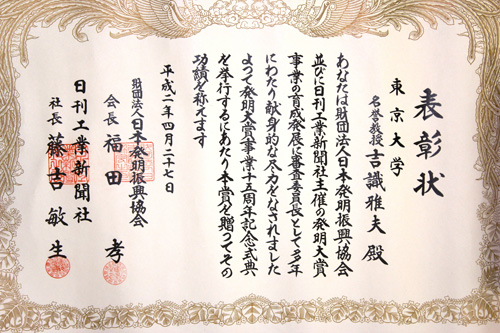 表彰状
東京大学
名誉教授 吉識雅夫 殿
あなたは財団法人日本発明振興協会
並びに日刊工業新聞社主催の発明大賞
事業の育成発展に審査委員長として多年
にわたり献身的な尽力をなされました
よって発明大賞事業十五周年記念式典
を挙行するにあたり本賞を贈ってその
功績を称えます
平成二年四月二十七日
財団法人日本発明振興協会
会長 福田 孝
日刊工業新聞社
社長 藤吉敏生